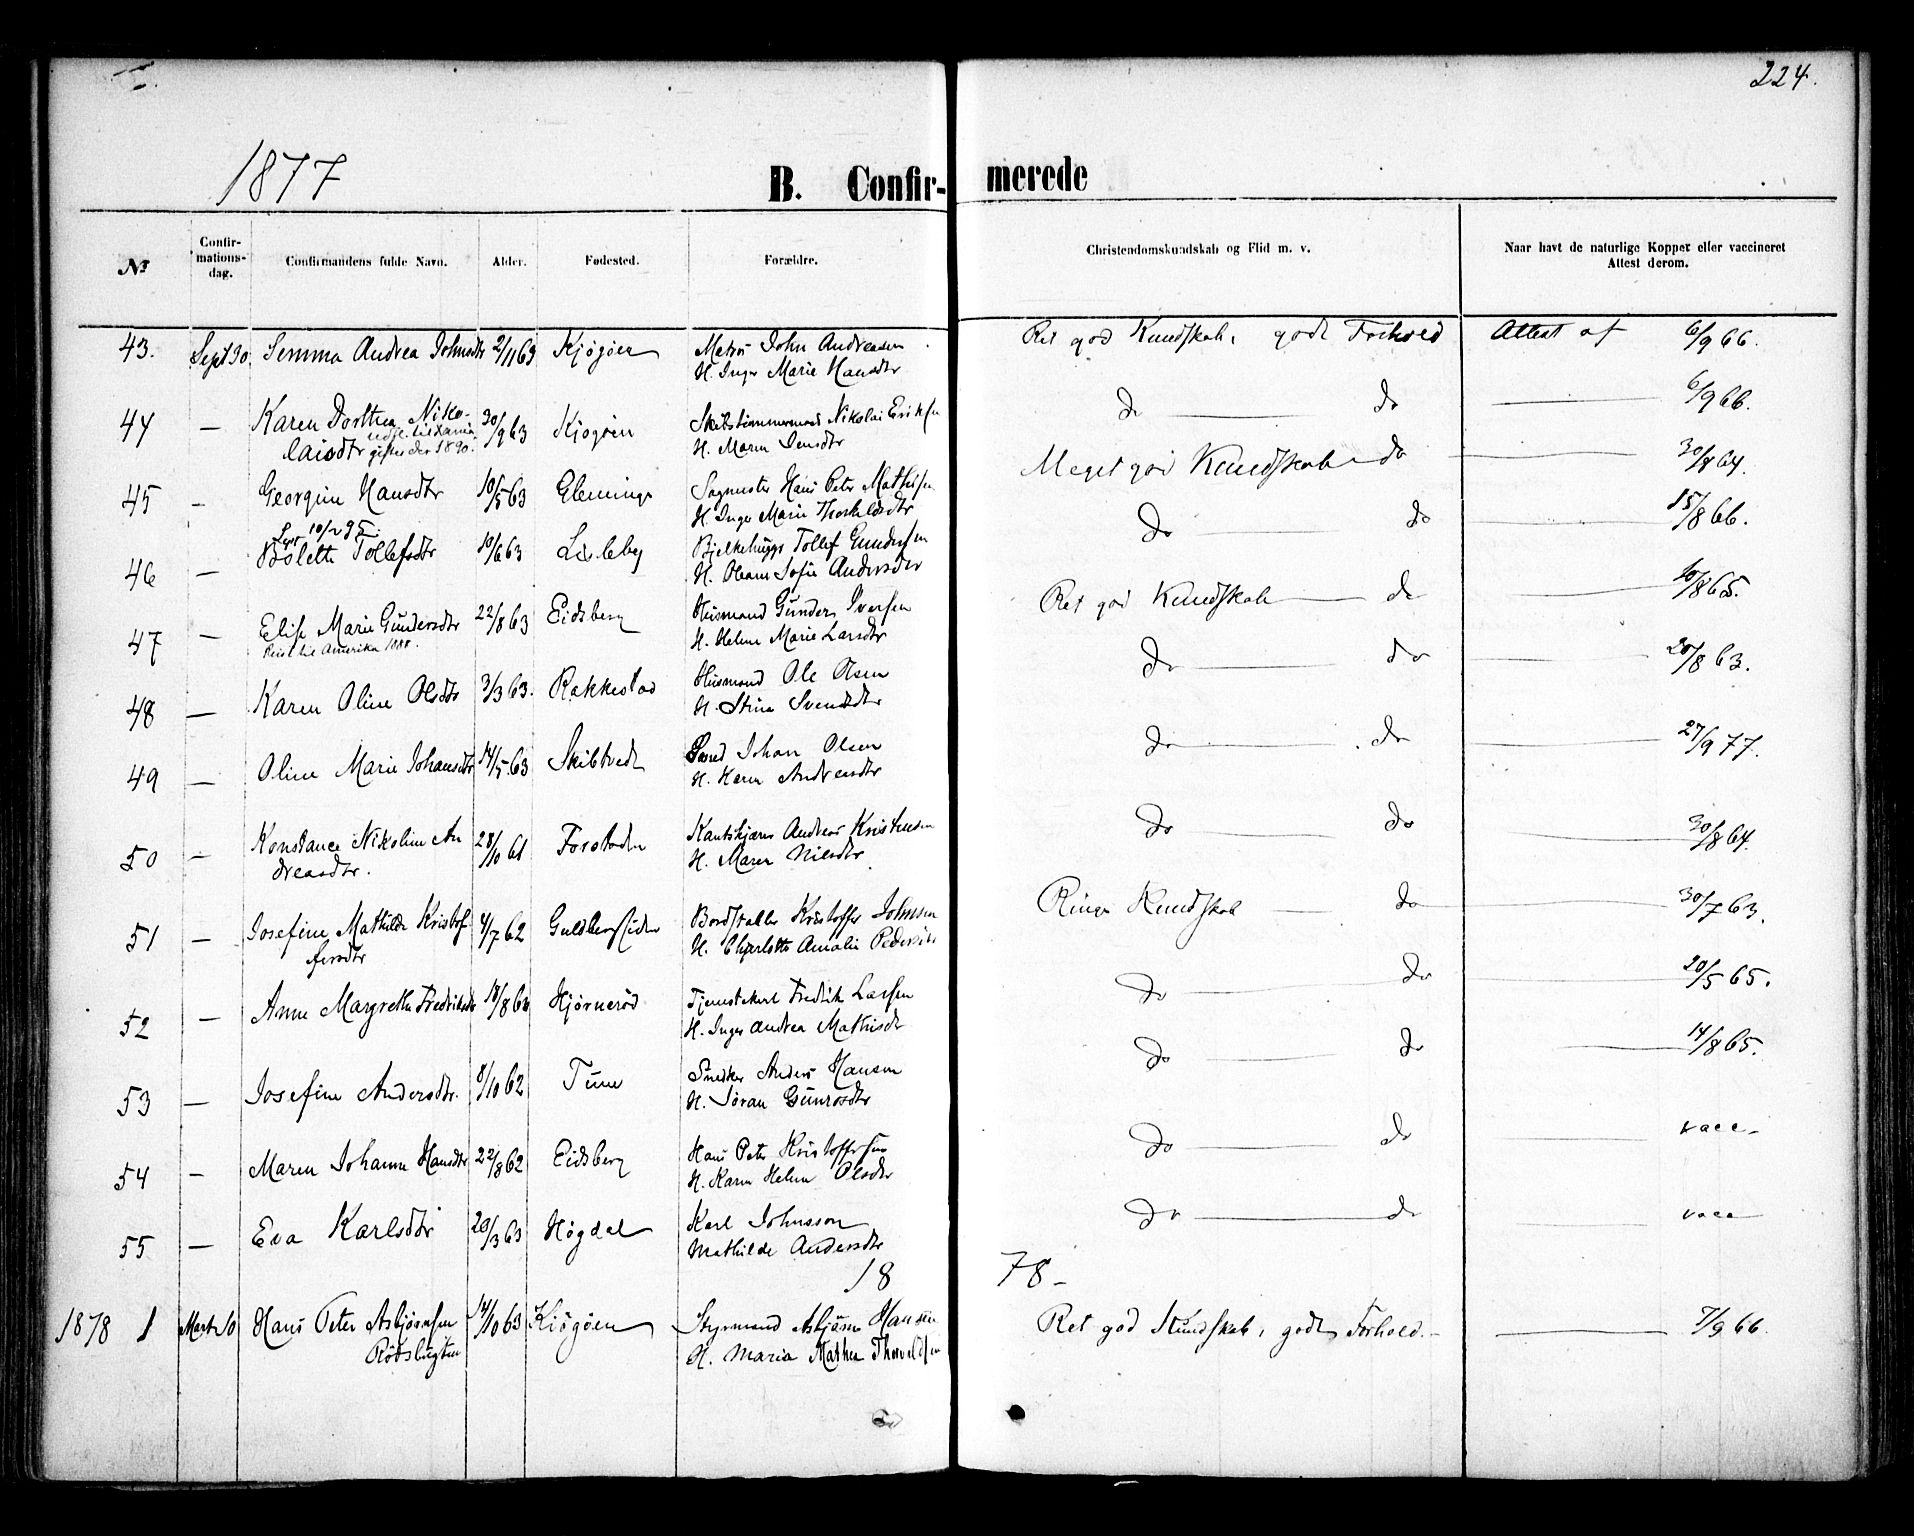 224.
1877
B. Confir- merede
№ Confir-mations-dag. Confirmandens fulde Navn. Alder. Fødested. Forældre. Christendomskundskab og Flid m. v. Naar havt de naturlige Kopper eller vaccineret Attest derom.
43. Sept 30. Andrea Johnsdtr 2/11 63 Kjøgøen Matros John Andreasen Ret god Kundskab, godt Forhold Attest af 6/9 66.
H. Inger Marie Hansdtr
44 — Karen Dorthea Niko- 30/9 63 Kjøgøen Nikolai Eriksen do — do — 6/9 66.
laisdtr gift der 1890. H. Maren Jensdtr
45 — Georgine Hansdtr 10/5 63 Glemminge Sagmester Hans Peter Mathisen Meget god Kundskab — do — 30/8 64.
H. Inger Marie Thorkildsdtr
46 — Bolette Tollefsdtr 10/6 63 Lisleby Bjelkehugger Tollef Gundersen do — do — 15/8 66.
H. Oleane Sofie Andersdtr
47 — Elise Marie Gundersdtr 22/8 63 Eidsberg Husmand Gunder Iversen Ret god Kundskab — do — 10/8 65.
Reist til Amerika 1888. H. Helene Marie Larsdtr
48 — Karen Oline Olsdtr 3/3 63. Rakkestad Husmand Ole Olsen do — do — 20/8 63.
H. Stina Svendsdtr
49 — Oline Marie Johansdtr 14/5 63 Skibtvedt Johan Olsen do — do — 27/9 77.
H. Karen Andreasdtr
50 — Konstance Nikoline An 28/10 61 Forstaden Andreas Kristensen do — do — 30/8 64.
dreasdtr. H. Maren Nilsdtr
51 — Josefine Mathilde Kristof 4/7 62 Bordstabler Kristoffer Johnsen Ringe Kundskab — do — 30/7 63.
fersdtr H. Charlotte Amalie
52 — Anne Margrethe 18/8 Hjørnerød Tjenestekarl Fredrik Larsen do — do — 20/5 65.
H. Inger Andrea Mathisdtr
53 — Josefine Andersdtr. 8/10 62 Tune Snedker Anders Hansen do — do — 14/8 65.
H. Jøran
54 — Maren Johanne Hansdtr 22/8 62 Eidsberg Hans Peter Kristoffersen do — do vacc.
H. Karen Helene Olsdtr
55 — Eva Karlsdtr 20/3 63 Høgdal Karl Johnsson do — do — vacc
Mathilde Andersdtr
18 78 –
1878 1 Mart 10 Hans Peter Asbjørnsen 14/10 63 Kjøgøen Styrmand Asbjørn Hansen Ret god Kundskab, godt Forhold. — 7/9 66.
Rødsbugten H. Maria Mathea Thorvaldsen